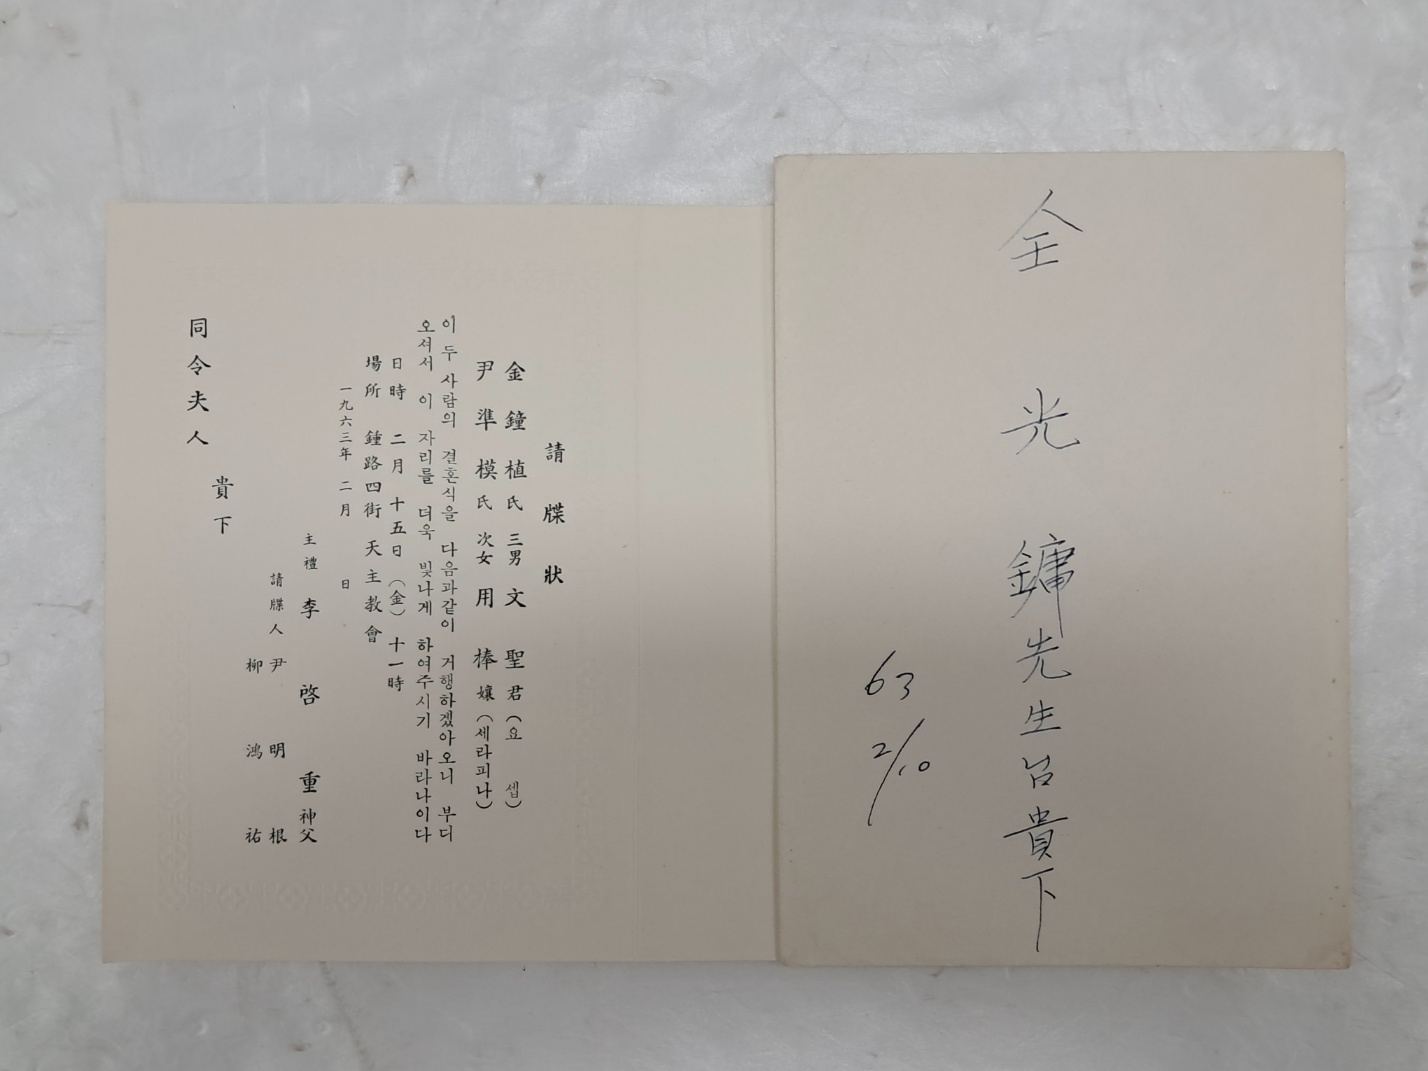 全 光 鏞 先生 台 貴下
63
2/10
請牒狀
金鐘植氏 三男 文聖君 (요셉)
尹準模氏 次女 用棒孃 (세라피나)
이 두 사람의 결혼식을 다음과같이 거행하겠아오니 부디
오셔서 이 자리를 더욱 빛나게 하여주시기 바라나이다
日時 二月 十五日 (金) 十一時
場所 鍾路四街 天主教會
一九六三年 二月 日
主禮 李啓重 神父
請牒人 尹明根
柳鴻祐
貴下
同令夫人